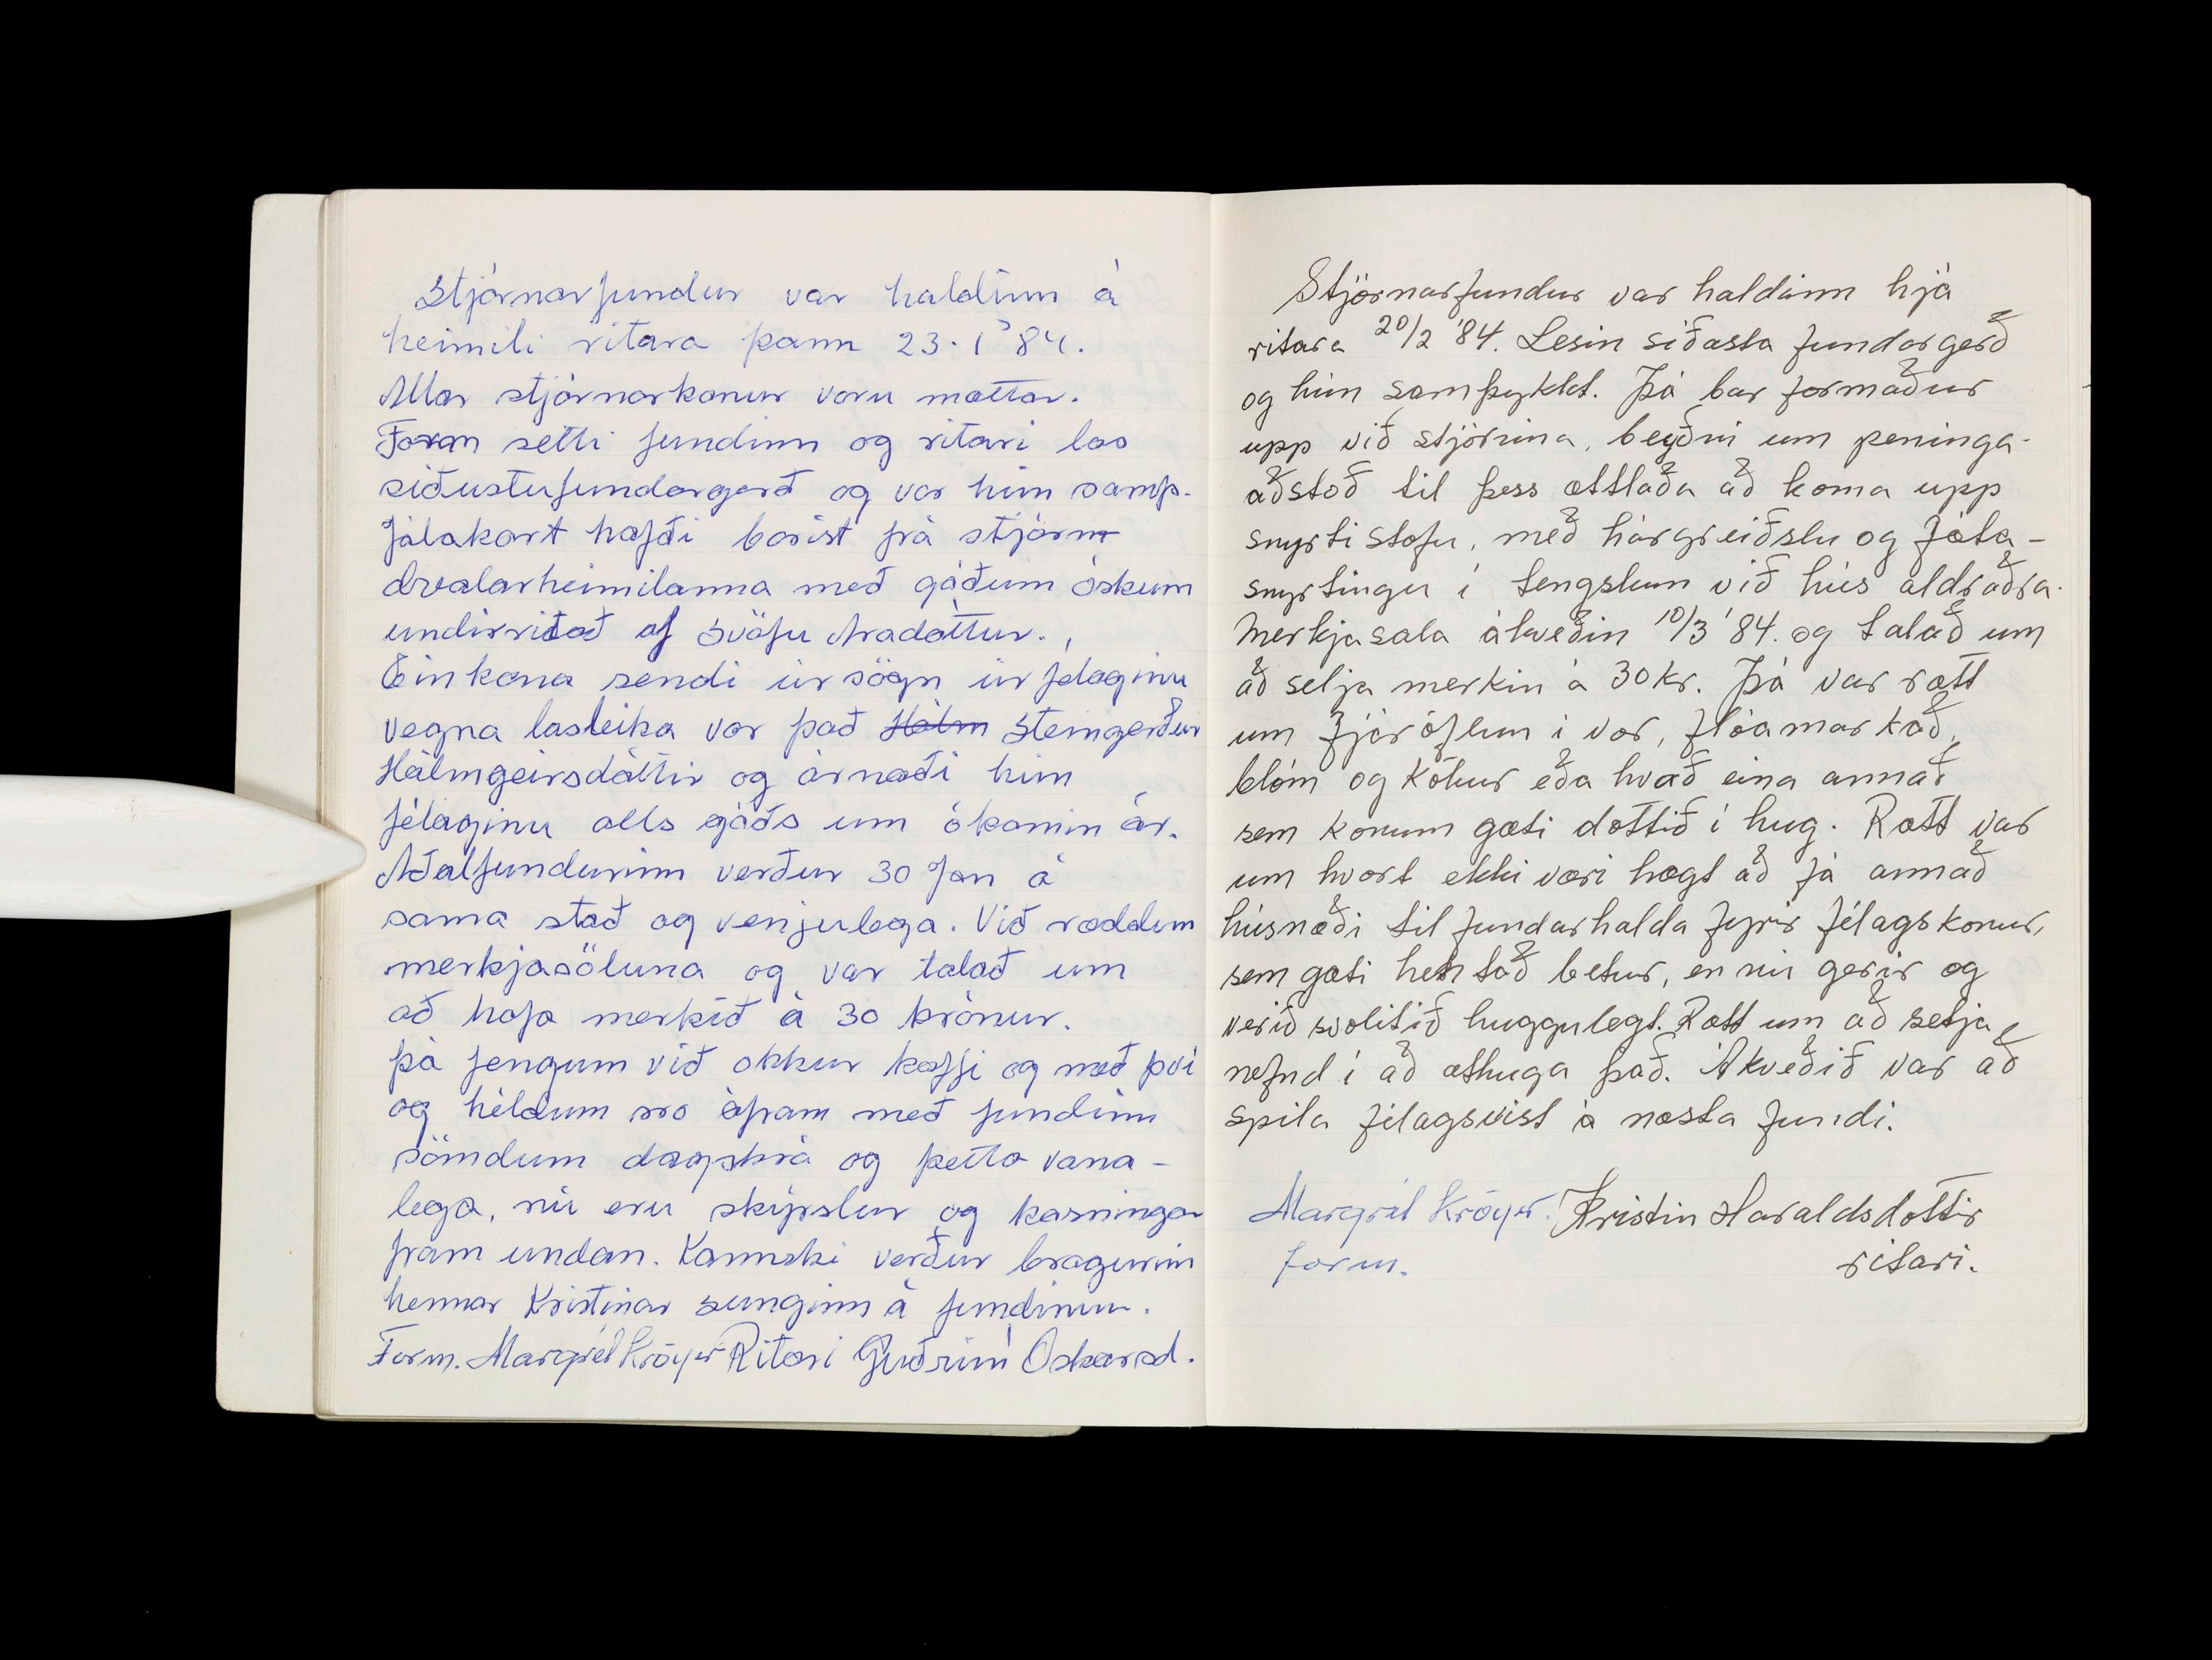 Stjórnarfundur var haldinn á
heimili ritara þann 23. 1 '84.
Allar stjórnarkonur voru mættar.
Form setti fundinn og ritari las
síðustufundargerð og var hún samþ.
Jólakort hafði borist frá stjórn
dvalarheimilanna með góðum óskum
undirritað af Sváfu Aradóttur.
Ein kona sendi úrsögn úr félaginu
vegna lasleika var það Hólm Steingerður
Hólmgeirsdóttir og árnaði hún
félaginu alls góðs um ókomin ár.
Aðalfundurinn verður 30 Jan á
sama stað og venjulega. Við ræddum
merkjasöluna og var talað um
að hafa merkið á 30 krónur.
þá fengum við okkur kaffi og með því
og héldum svo áfram með fundinn
sömdum dagskrá og þetta vana-
lega, nú eru skýrslur og kosningar
fram undan. Kannski verður bragurinn
hennar Kristínar sunginn á fundinum.
Form. Margrét Kröyer Ritari Guðrún Óskarsd.
Stjórnarfundur var haldinn hjá
ritara 20/2 '84. Lesin síðasta fundargerð
og hún samþykkt. Þá bar formaður
upp við stjórnina, beyðni um peninga-
aðstoð til þess ættlaða að koma upp
snyrtistofu, með hárgreiðslu og fóta-
snyrtingu í tengslum við hús aldraðra.
Merkjasala ákveðin 10/3 '84. og talað um
að selja merkin á 30 kr. Þá var rætt
um fjáröflun í vor, flóamarkað,
blóm og kökur eða hvað eina annað
sem konum gæti dottið í hug. Rætt var
um hvort ekki væri hægt að fá annað
húsnæði til fundarhalda fyrir félagskonur,
sem gæti hentað betur, en nú gerir og
verið svolítið huggulegt. Rætt um að setja
nefnd í að athuga það. Ákveðið var að
spila félagsvist á næsta fundi.
Margrét Kröyer. Kristín Haraldsdóttir
form. ritari.